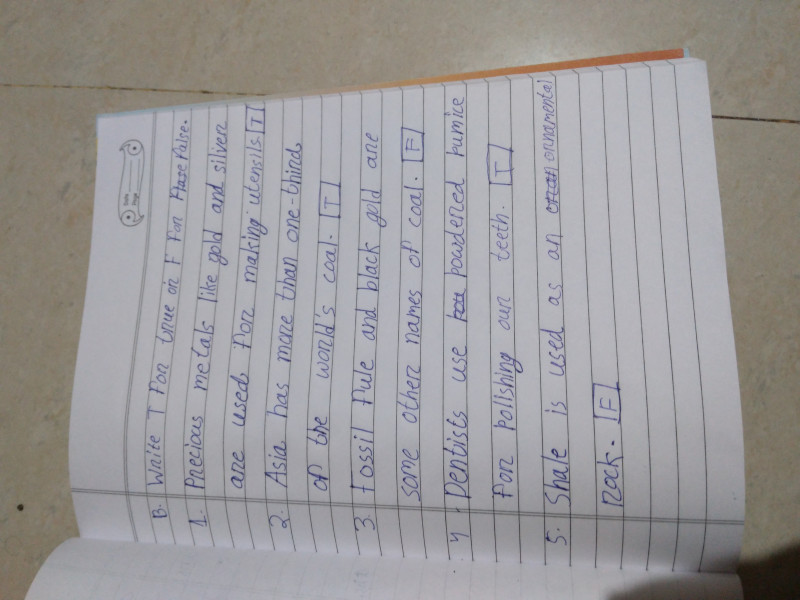 Date
Page
B. Write T For true or F For False.
1. Precious metals like gold and silver
are used for making utensils. T
2. Asia has more than one-third
of the world's coal. T
3. Fossil Fule and black gold are
some other names of coal. F
4. Dentists use powdered Pumice
for Polishing our teeth. T
5. Shale is used as an ornnamental
rock. F